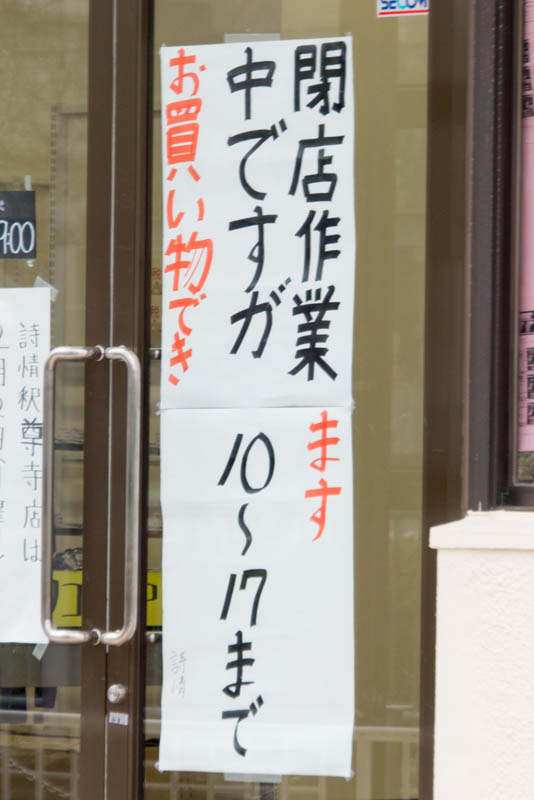 閉店作業
中ですが
お買い物でき
ます
10〜17まで
詩情
詩情釈尊寺店は
SECOM